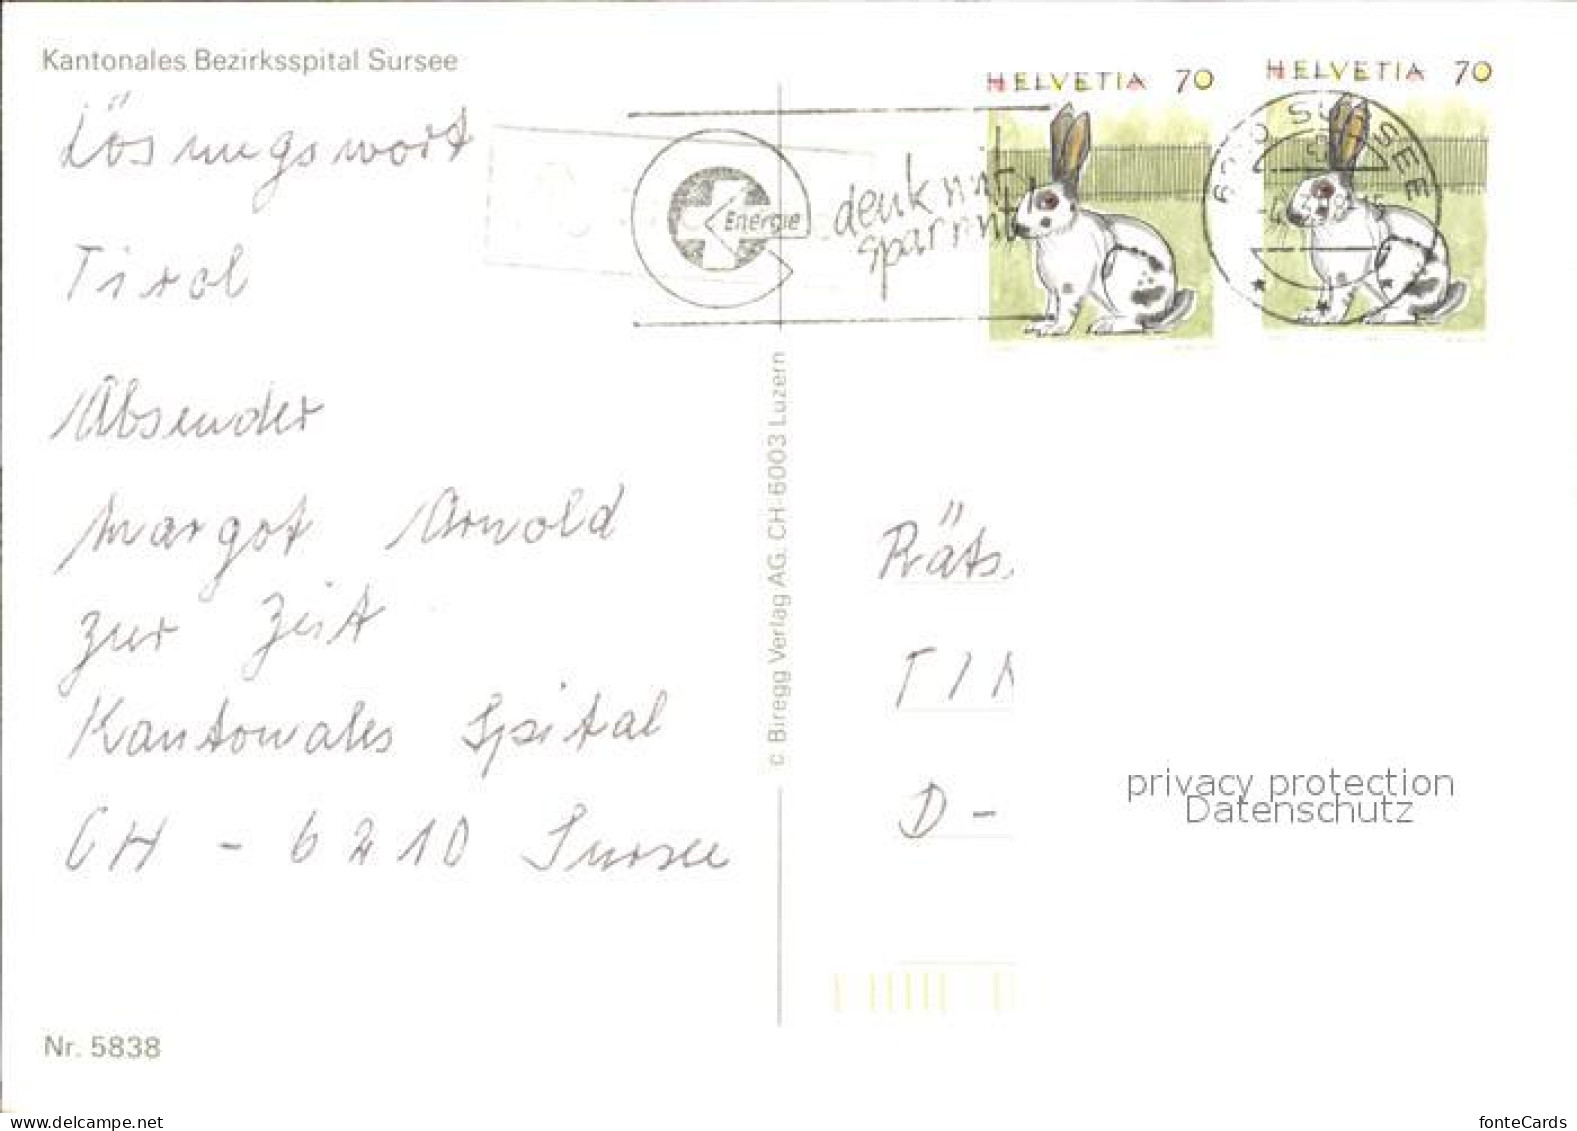 Kantonales Bezirksspital Sursee
Lösungswort
Tirol
Absender
Margot Arnold
zur Zeit
Kantonales Spital
CH - 6210 Sursee
Nr. 5838
© Biregg Verlag AG. CH-6003 Luzern
Energie
denk mit
spar mit
HELVETIA 70
HELVETIA 70
6210 SURSEE
Räts
TI
D -
privacy protection
Datenschutz
www.delcampe.net
fonteCards